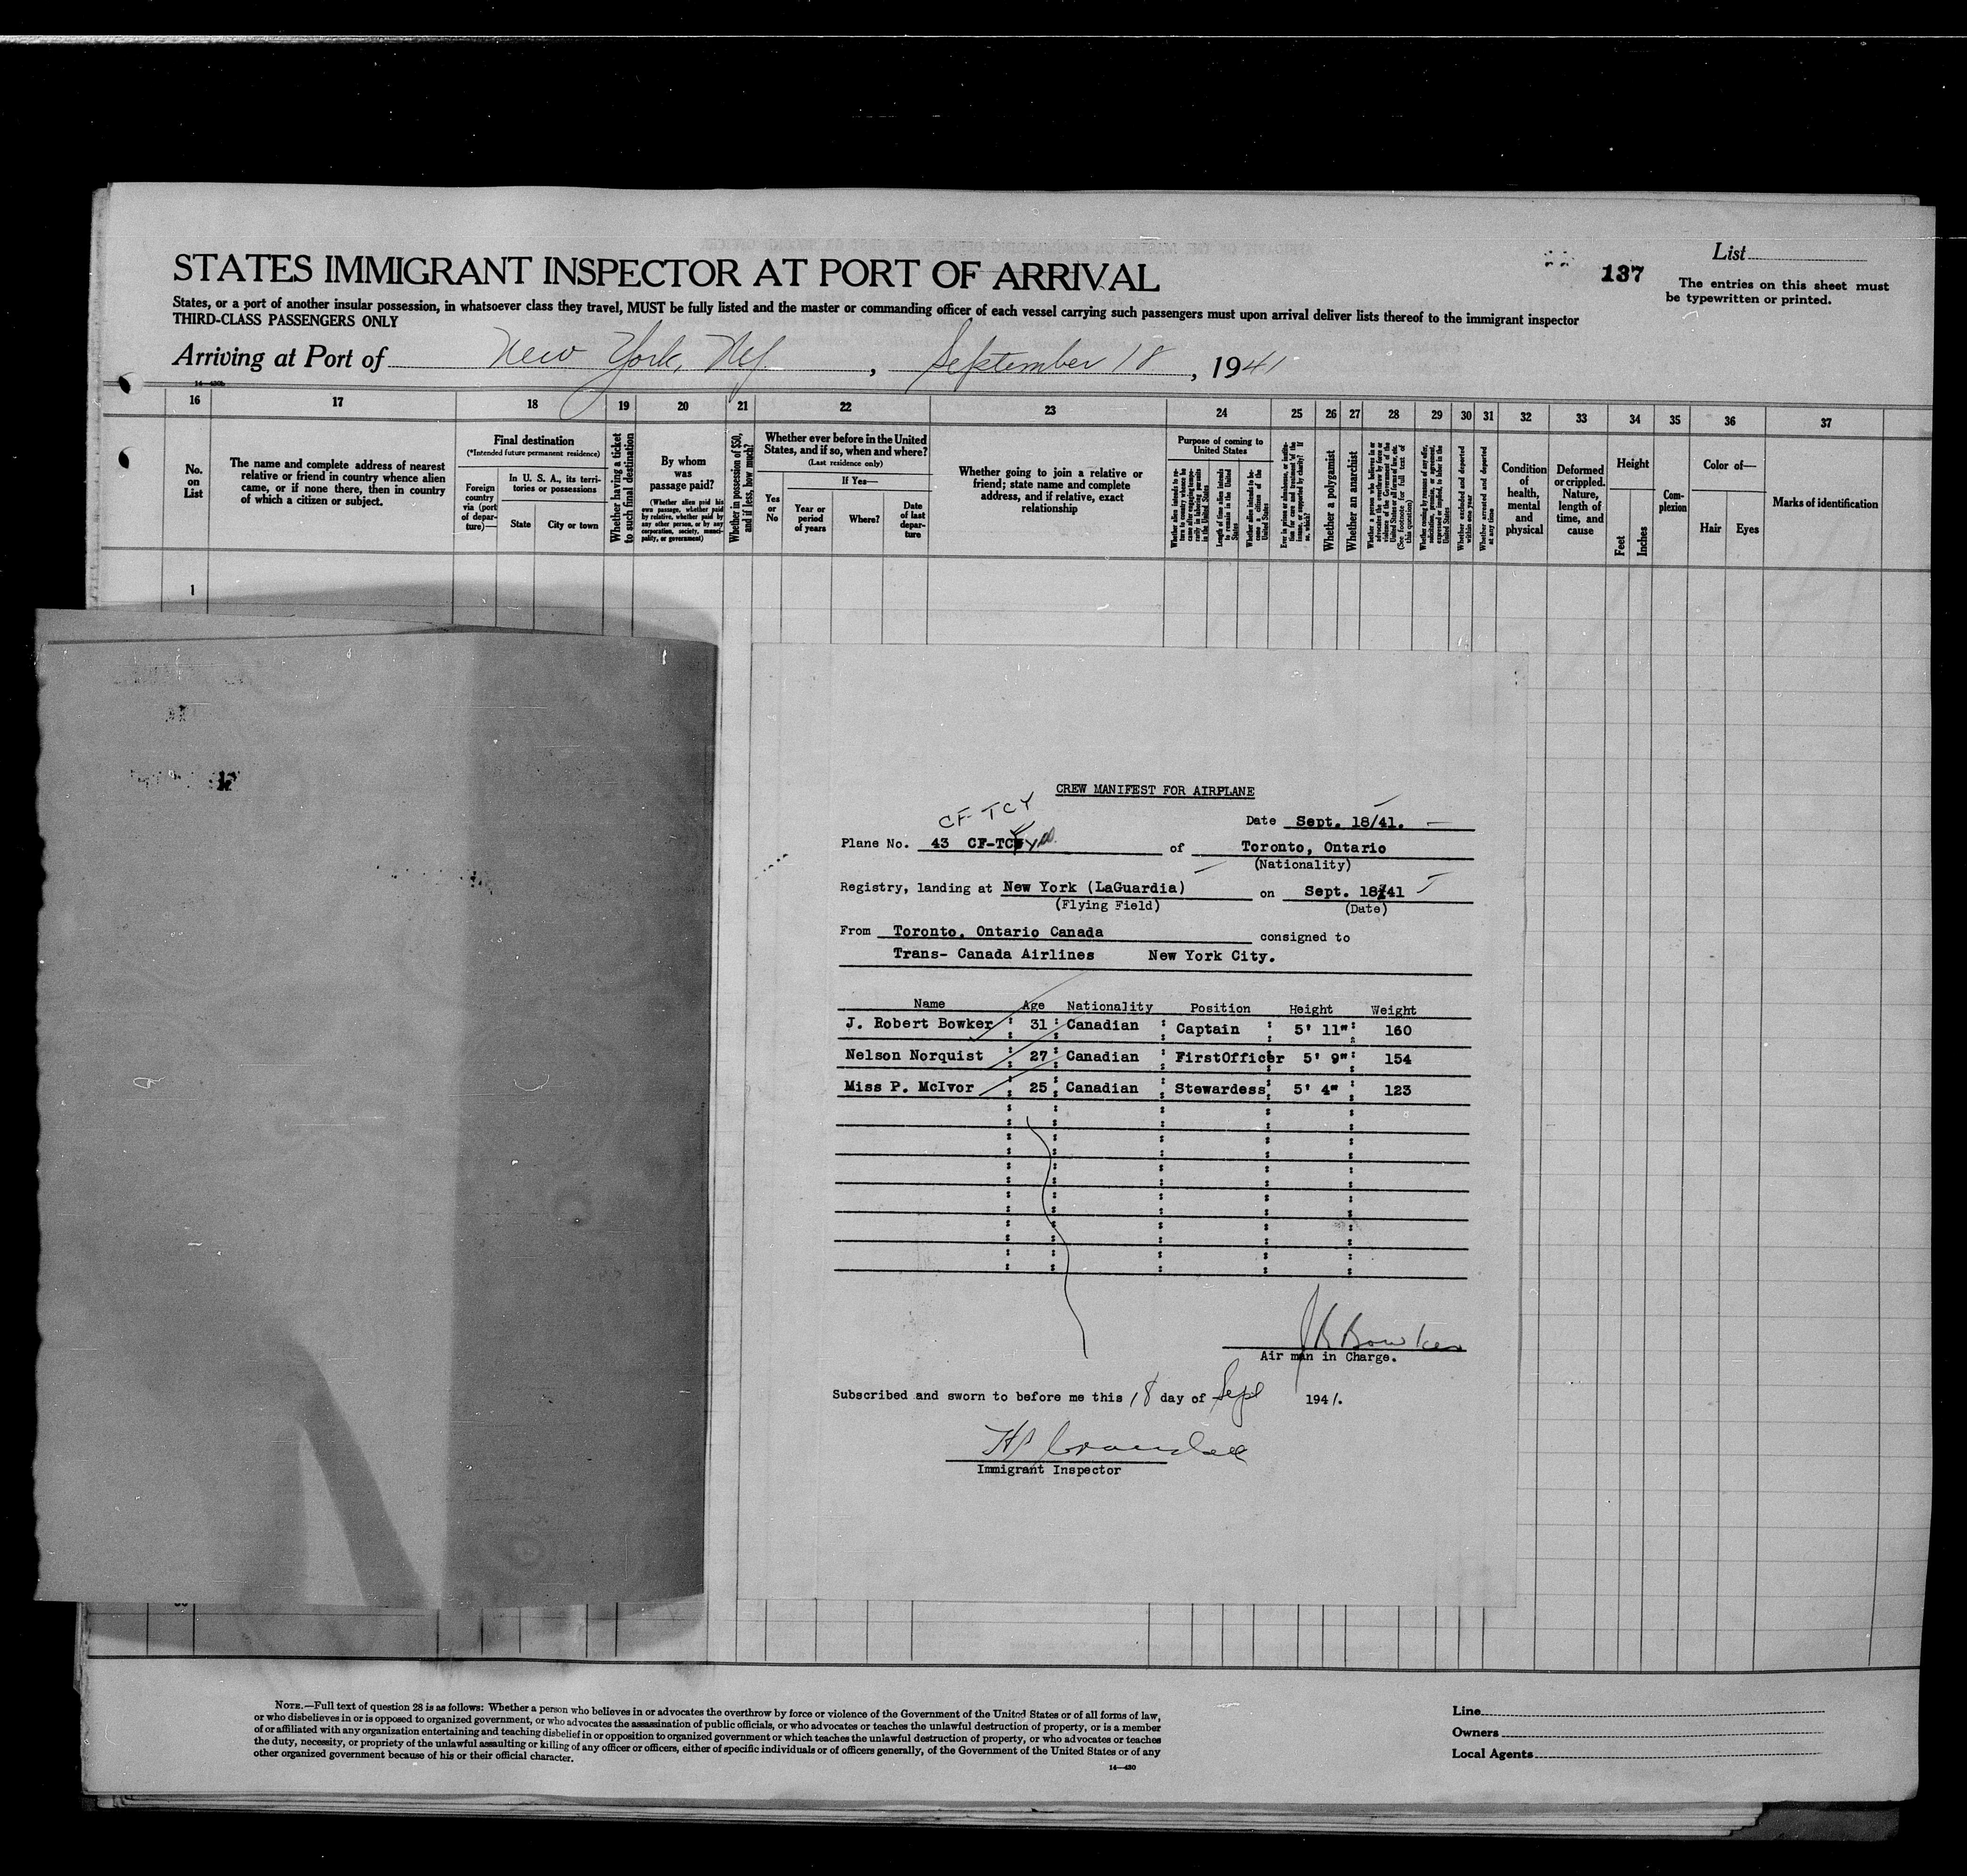 List
137
The entries on this sheet must
be typewritten or printed.
STATES IMMIGRANT INSPECTOR AT PORT OF ARRIVAL
States, or a port of another insular possession, in whatsoever class they travel, MUST be fully listed and the master or commanding officer of each vessel carrying such passengers must upon arrival deliver lists thereof to the immigrant inspector
THIRD-CLASS PASSENGERS ONLY
Arriving at Port of New York, NY. , September 18 , 1941
16 17 18 19 20 21 22 23 24 25 26 27 28 29 30 31 32 33 34 35 36 37
No.
on
List
The name and complete address of nearest
relative or friend in country whence alien
came, or if none there, then in country
of which a citizen or subject.
Final destination
(*Intended future permanent residence)
Foreign
country
via (port
of depar-
ture)—
In U. S. A., its terri-
tories or possessions
State
City or town
Whether having a ticket
to such final destination
By whom
was
passage paid?
(Whether alien paid his
own passage, whether paid
by relative, whether paid by
any other person, or by any
corporation, society, munici-
pality, or government)
Whether in possession of $50,
and if less, how much?
Whether ever before in the United
States, and if so, when and where?
(Last residence only)
Yes
or
No
If Yes—
Year or
period
of years
Where?
Date
of last
depar-
ture
Whether going to join a relative or
friend; state name and complete
address, and if relative, exact
relationship
Purpose of coming to
United States
Length of time alien intends
to remain in the United
States
Whether alien intends to be-
come a citizen of the
United States
Whether a polygamist
Whether an anarchist
Whether excluded and deported
within one year
Whether arrested and deported
at any time
Condition
of
health,
mental
and
physical
Deformed
or crippled.
Nature,
length of
time, and
cause
Height
Feet
Inches
Com-
plexion
Color of—
Hair
Eyes
Marks of identification
1
CREW MANIFEST FOR AIRPLANE
CF-TCY
Date Sept. 18/41.
Plane No. 43 CF-TCY of Toronto, Ontario
(Nationality)
Registry, landing at New York (LaGuardia) on Sept. 18/41
(Flying Field) (Date)
From Toronto. Ontario Canada consigned to
Trans- Canada Airlines New York City.
Name Age Nationality Position Height Weight
J. Robert Bowker : 31 : Canadian : Captain : 5' 11" : 160
Nelson Norquist : 27 : Canadian : FirstOfficer 5' 9" : 154
Miss P. McIvor : 25 : Canadian : Stewardess : 5' 4" : 123
JR Bowker
Air man in Charge.
Subscribed and sworn to before me this 18 day of Sept 1941.
Immigrant Inspector
NOTE.—Full text of question 28 is as follows: Whether a person who believes in or advocates the overthrow by force or violence of the Government of the United States or of all forms of law,
or who disbelieves in or is opposed to organized government, or who advocates the assassination of public officials, or who advocates or teaches the unlawful destruction of property, or is a member
of or affiliated with any organization entertaining and teaching disbelief in or opposition to organized government or which teaches the unlawful destruction of property, or who advocates or teaches
the duty, necessity, or propriety of the unlawful assaulting or killing of any officer or officers, either of specific individuals or of officers generally, of the Government of the United States or of any
other organized government because of his or their official character.
14—430
Line
Owners
Local Agents